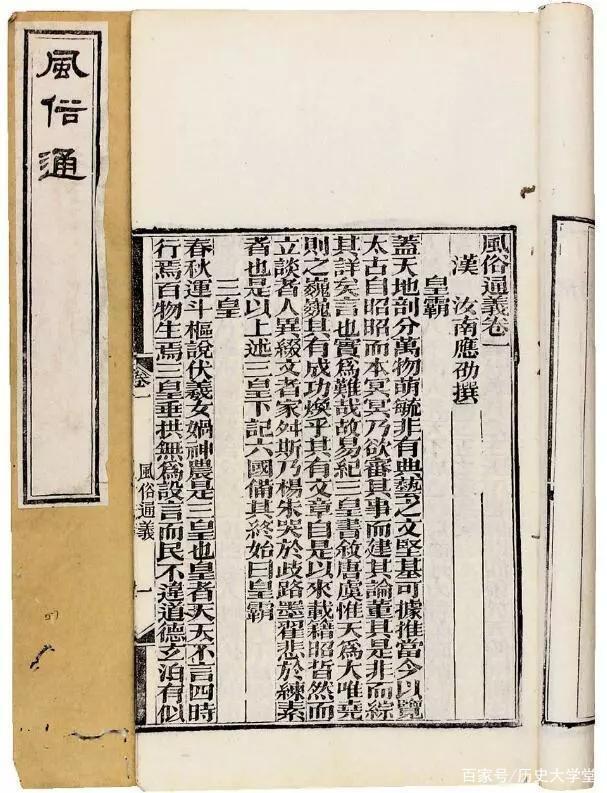 風俗通義卷一
漢 汝南應劭撰
皇霸
蓋天地剖分萬物萌毓非有典藝之文堅基可據推當今以覽
太古自昭昭而本冥冥乃欲審其事而建其論董其是非而綜
其詳矣言也實爲難哉故易紀三皇書敘唐虞惟天爲大唯堯
則之巍巍其有成功煥乎其有文章自是以來載籍昭晢然而
立談者人異綴文者家舛斯乃楊朱哭於歧路墨翟悲於練素
者也是以上述三皇下記六國備其終始曰皇霸
三皇
春秋運斗樞說伏羲女媧神農是三皇也皇者天天不言四時
行焉百物生焉三皇垂拱無爲設言而民不違道德玄泊有似
卷一
風俗通義
一
風俗通
百家号/历史大学堂